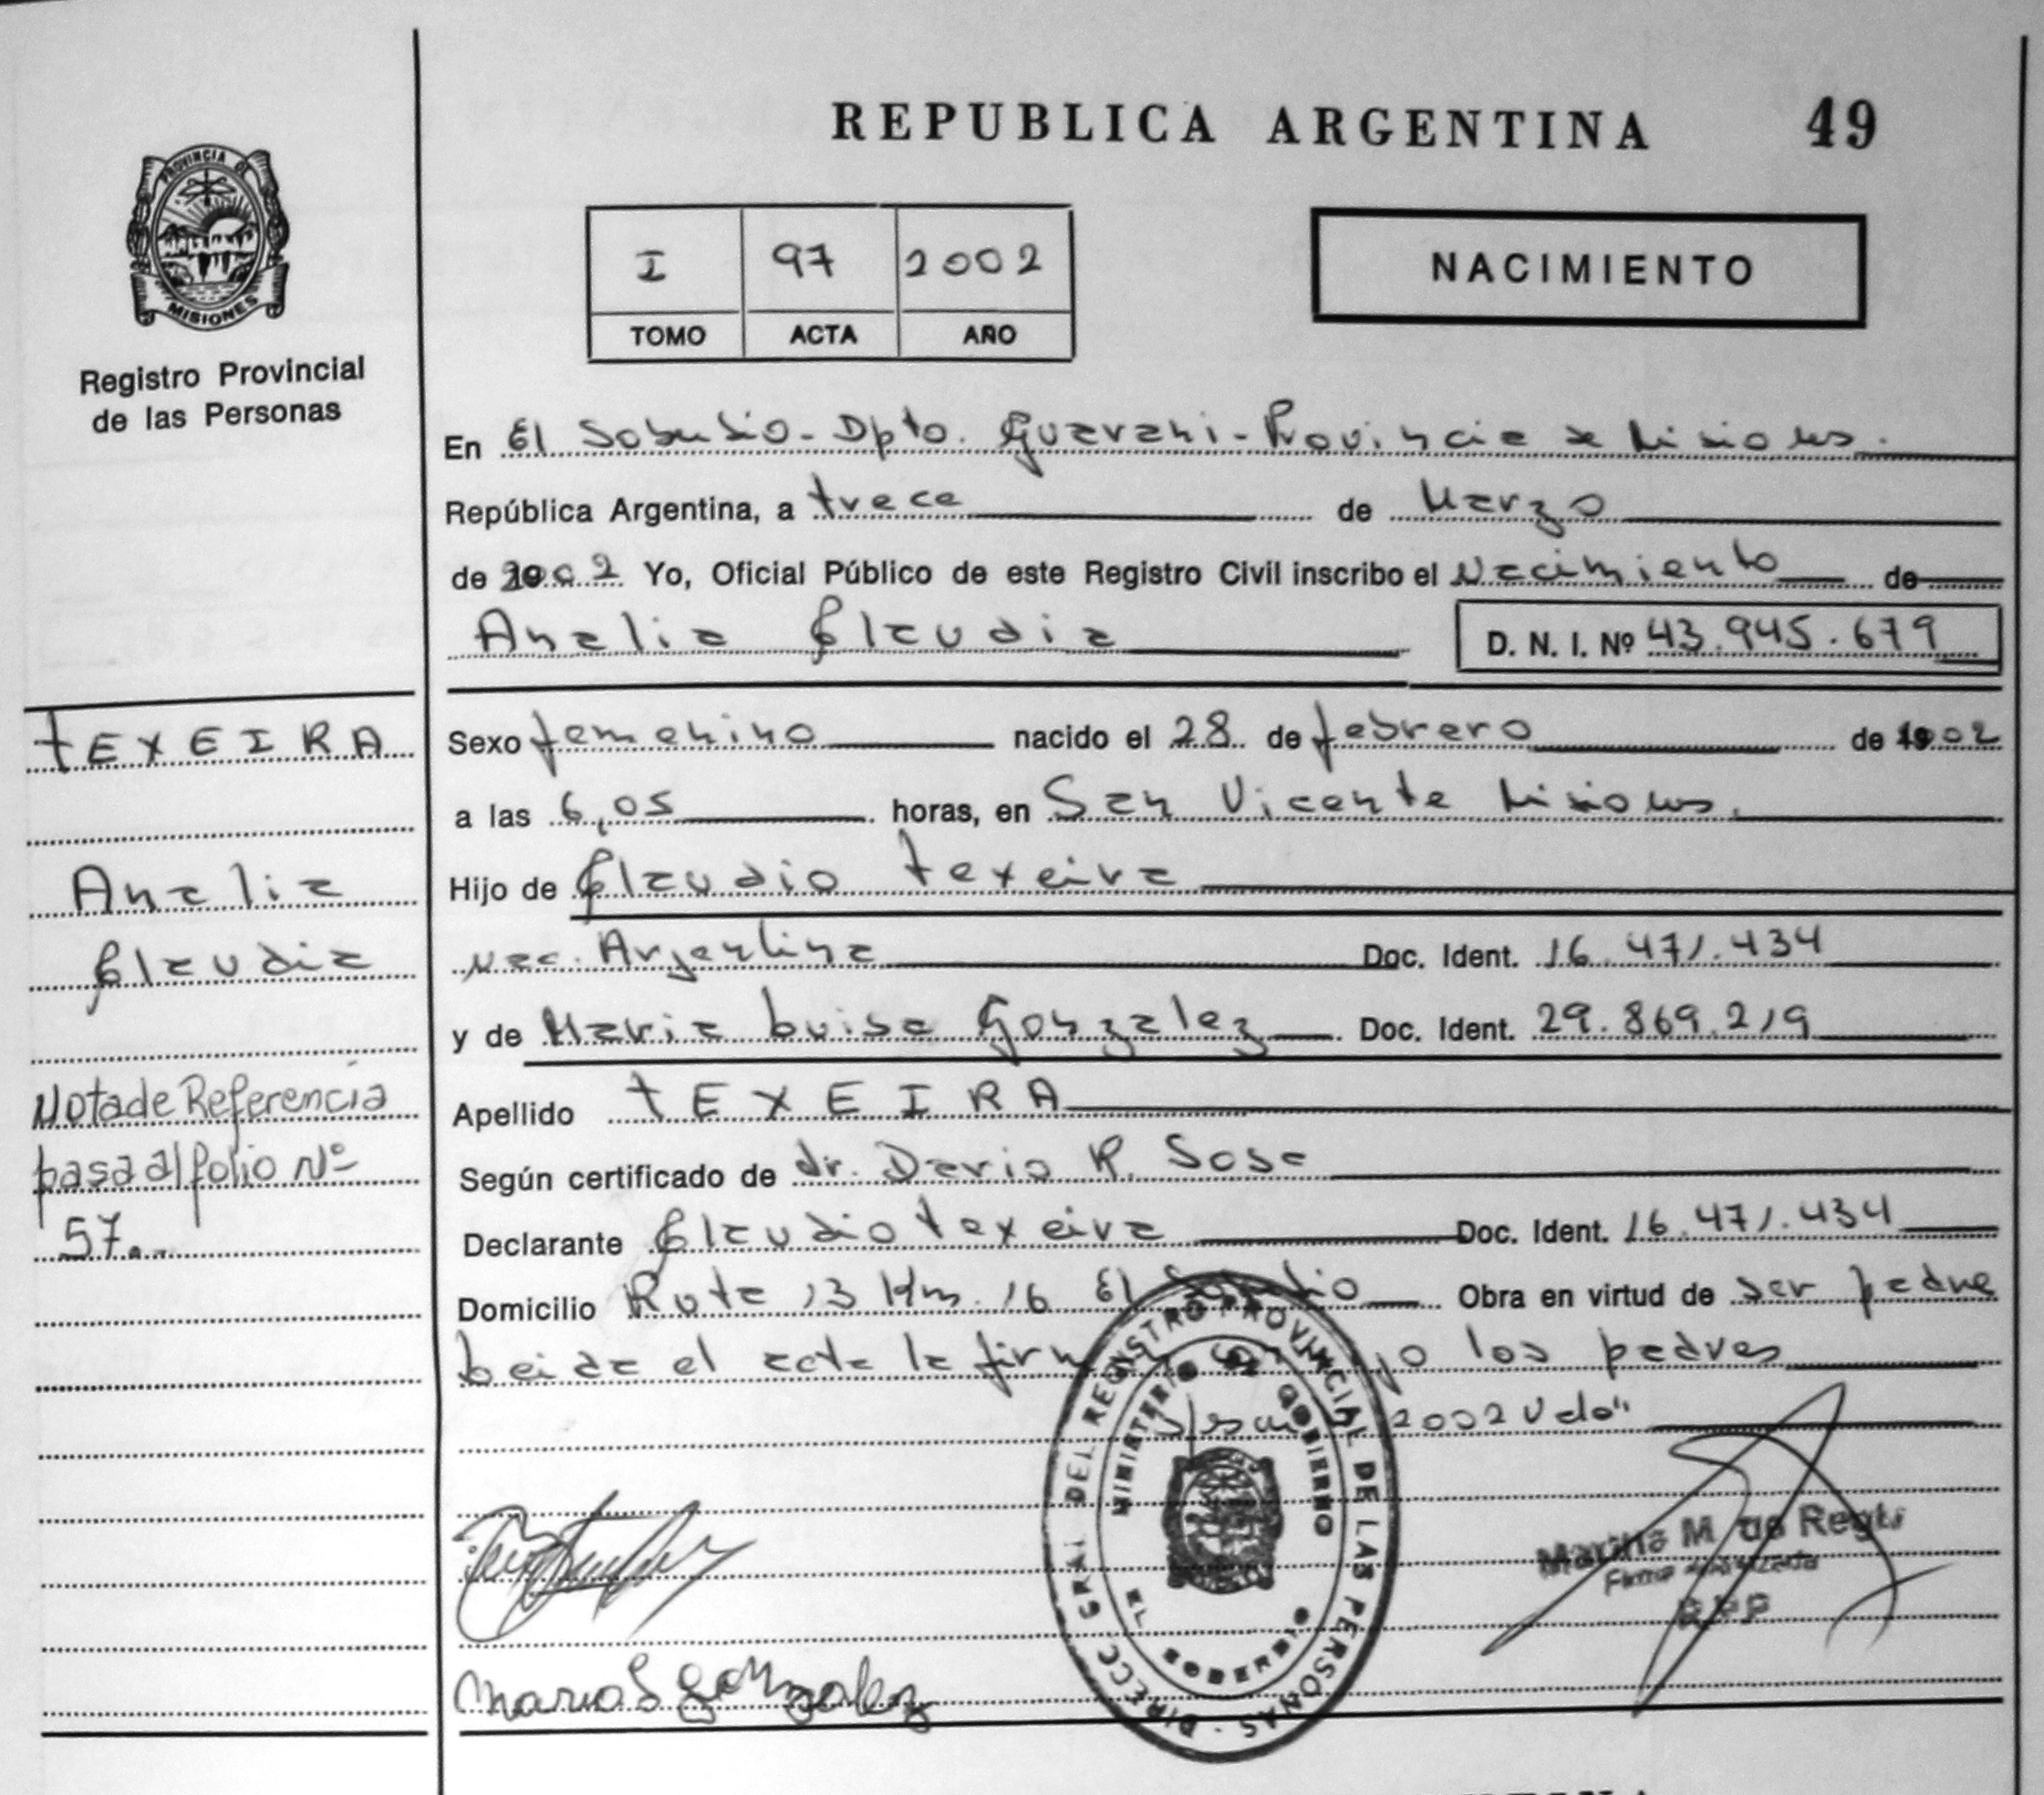 REPUBLICA ARGENTINA 49
PROVINCIA DE
MISIONES
Registro Provincial
de las Personas
I 97 2002
TOMO ACTA AÑO
NACIMIENTO
En El Soberbio - Dpto. Guarani - Provincia de Misiones.
República Argentina, a trece de Marzo
de 2002 Yo, Oficial Público de este Registro Civil inscribo el Nacimiento de
Analia Claudia
D. N. I. Nº 43.945.679
TEXEIRA
Analia
Claudia
Nota de Referencia
pasa al folio Nº
57..
Sexo femenino nacido el 28 de febrero de 2002
a las 6,05 horas, en San Vicente Misiones.
Hijo de Claudio Texeira
Nac. Argentina Doc. Ident. 16.471.434
y de Maria Luisa Gonzalez Doc. Ident. 29.869.219
Apellido TEXEIRA
Según certificado de dr. Dario R. Sosa
Declarante Claudio Texeira Doc. Ident. 16.471.434
Domicilio Ruta 13 Km. 16 El Soberbio Obra en virtud de ser padre
Leida el acta la firman conmigo los padres
2002 Vale"
DIRECC GRAL DEL REGISTRO PROVINCIAL DE LAS PERSONAS
MINISTERIO DE GOBIERNO
EL SOBERBIO
M. de
Firma Autorizada
R P P
Maria L Gonzalez